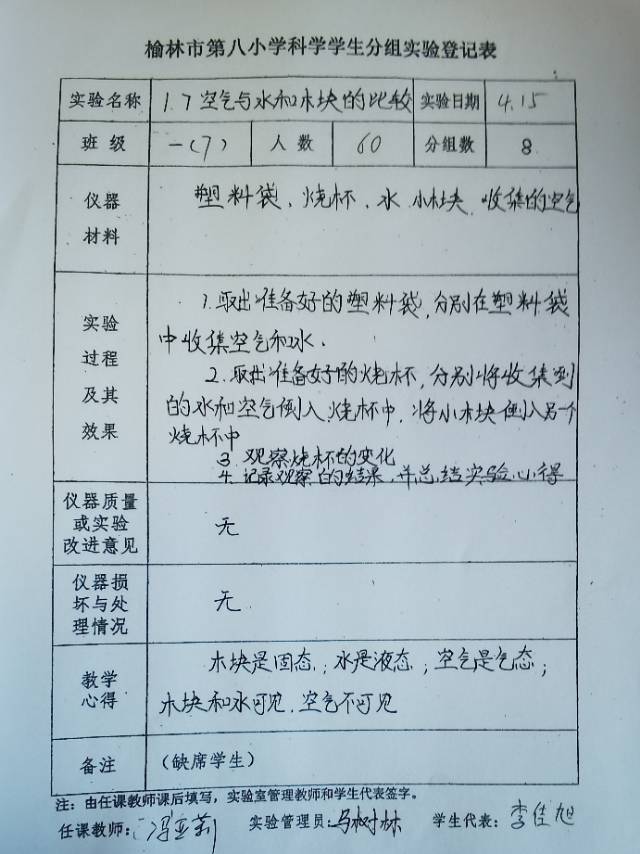 榆林市第八小学科学学生分组实验登记表
实验名称 1.7空气与水和木块的比较 实验日期 4.15
班级 一(7) 人数 60 分组数 8
仪器材料 塑料袋、烧杯、水、小木块、收集的空气
实验过程及其效果
1.取出准备好的塑料袋,分别在塑料袋
中收集空气和水.
2.取出准备好的烧杯,分别将收集到
的水和空气倒入烧杯中,将小木块倒入另一个
烧杯中
3.观察烧杯的变化
4.记录观察的结果,并总结实验心得
仪器质量或实验改进意见 无
仪器损坏与处理情况 无
教学心得
木块是固态;水是液态;空气是气态;
木块和水可见,空气不可见
备注 (缺席学生)
注:由任课教师课后填写,实验室管理教师和学生代表签字。
任课教师:冯亚莉 实验管理员:马树林 学生代表:李佳旭